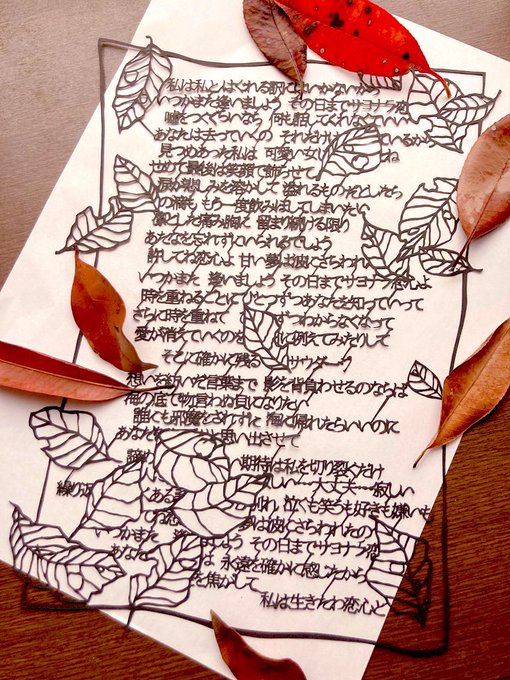 私は私とはぐれる訳にはいかないから
いつかまた逢いましょう その日までサヨナラ恋
嘘をつくぐらいなら 何も話してくれなくていい
あなたは去っていくの それだけは ているから
見つめあった私は 可愛い女 ね
せめて最後は笑顔で飾らせて
涙が悲しみを溶かして 溢れるものだとしたら
の滴も もう一度飲みほしてしまいたい
凛とした痛み胸に 留まり続ける限り
あなたを忘れずにいられるでしょう
許してね恋心よ 甘い夢は波にさらわれ
いつかまた 逢いましょう その日までサヨナラ恋心よ
時を重ねるごとに ひとつずつあなたを知っていって
さらに時を重ねて ずつわからなくなって
愛が消えていくのを に例えてみたりして
そこに確かに残る サウダージ
想いを紡いだ言葉まで 影を背負わせるのならば
海の底で物言わぬ貝になりたい
誰にも邪魔をされずに 海に帰れたらいいのに
あなたを 思い出させて
諦め 期待は私を切り裂くだけ
しい…大丈夫…寂しい
繰り返 ある 別れ 泣くも笑うも好きも嫌いも
てね恋 夢は波にさらわれたの
いつかまた ましょう その日までサヨナラ恋
あなた は 永遠を確かに感じたから
を焦がして
私は生きたわ恋心と